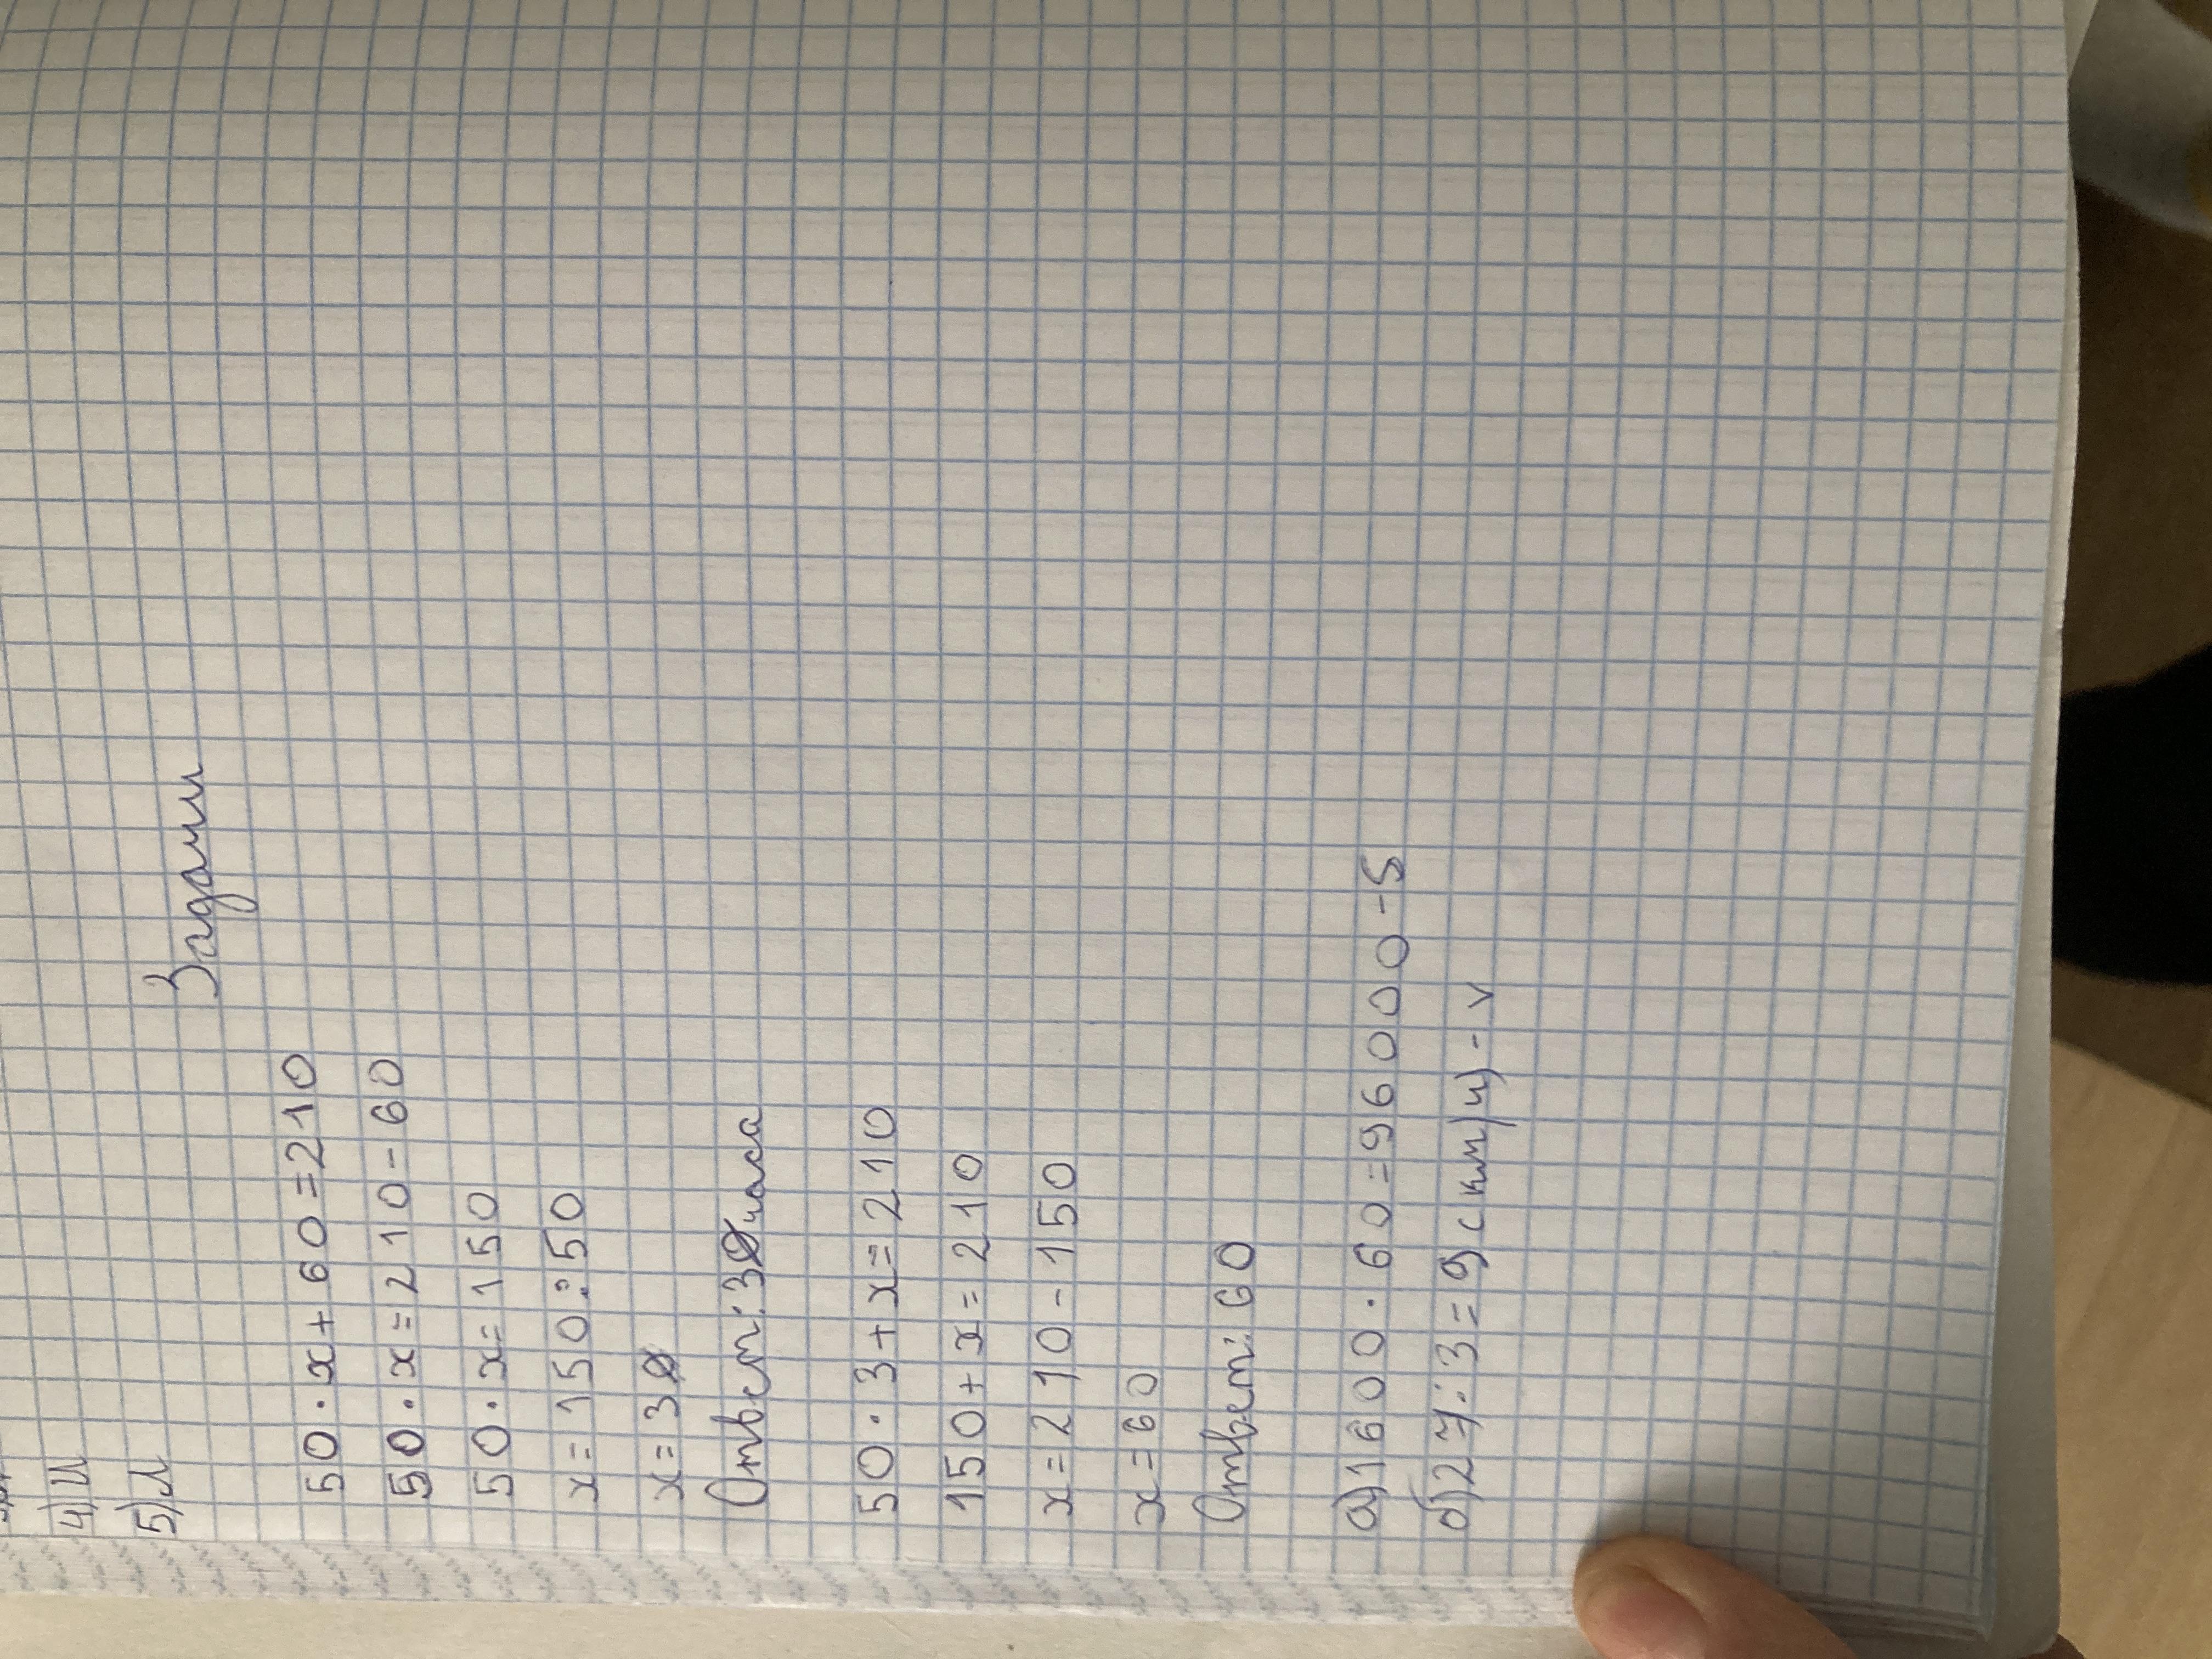 4) И
5) Л
Задачи
50 · x + 60 = 210
50 · x = 210 - 60
50 · x = 150
x = 150 : 50
x = 3
Ответ: 3 часа
50 · 3 + x = 210
150 + x = 210
x = 210 - 150
x = 60
Ответ: 60
а) 1600 · 60 = 96000 - S
б) 27 : 3 = 9 (км/ч) - v